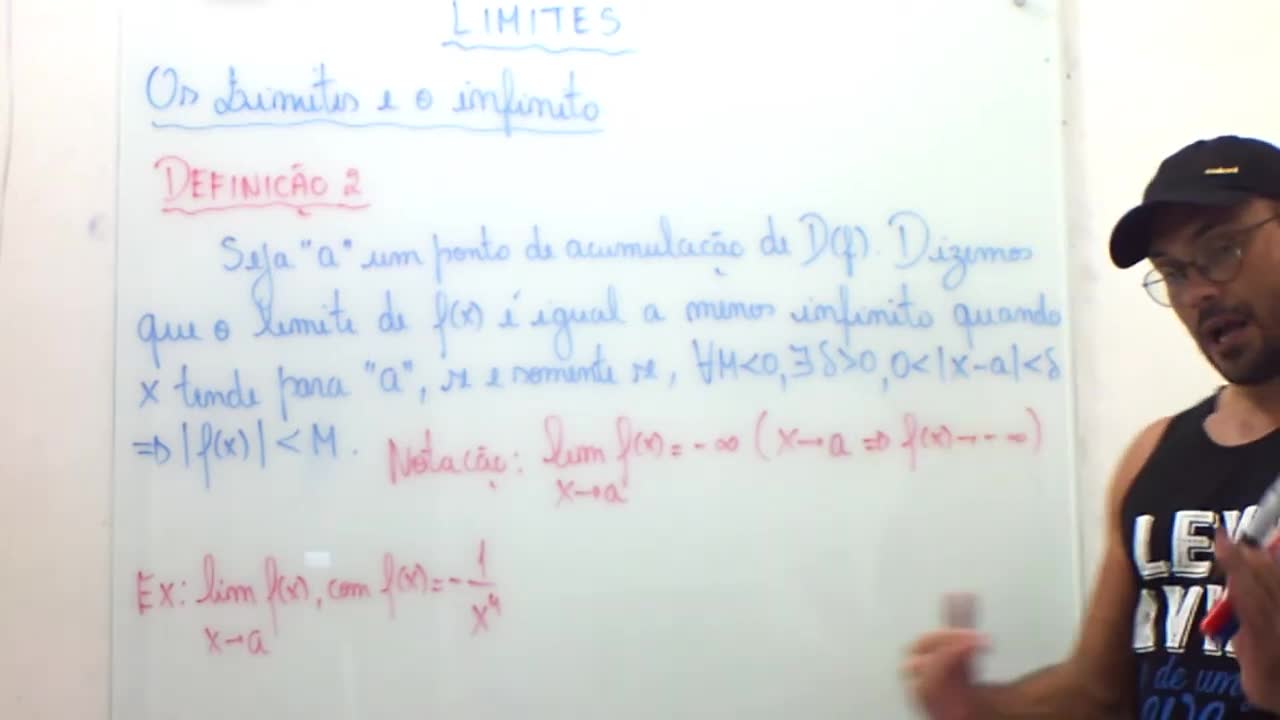 LIMITES
Os Limites e o infinito
DEFINIÇÃO 2
Seja "a" um ponto de acumulação de D(f). Dizemos
que o limite de f(x) é igual a menos infinito quando
x tende para "a", se e somente se, ∀M<0, ∃δ>0, 0<|x-a|<δ
⇒|f(x)|<M.
Notação: lim f(x)=-∞ (x→a ⇒ f(x)→-∞)
x→a
Ex: lim f(x), com f(x)=-1/x⁴
x→a
LEV
de um